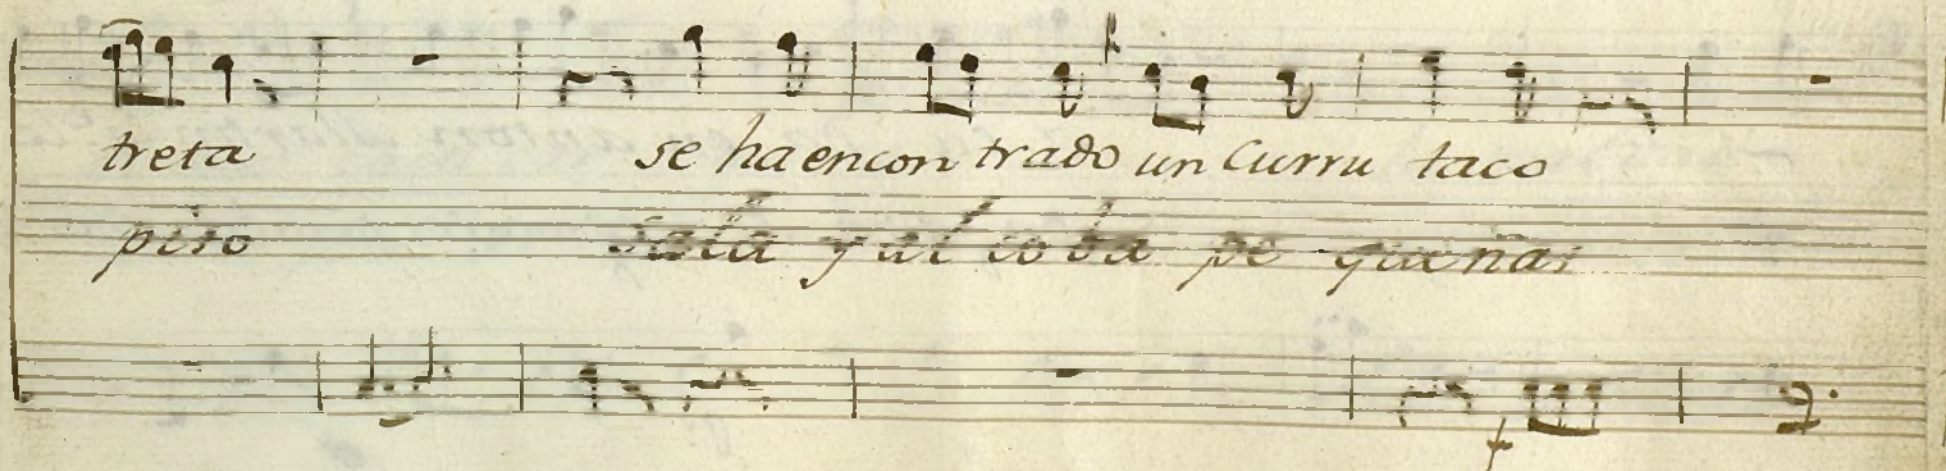 treta se ha encon trado un Curru taco
piso sala y al co ba pe queña